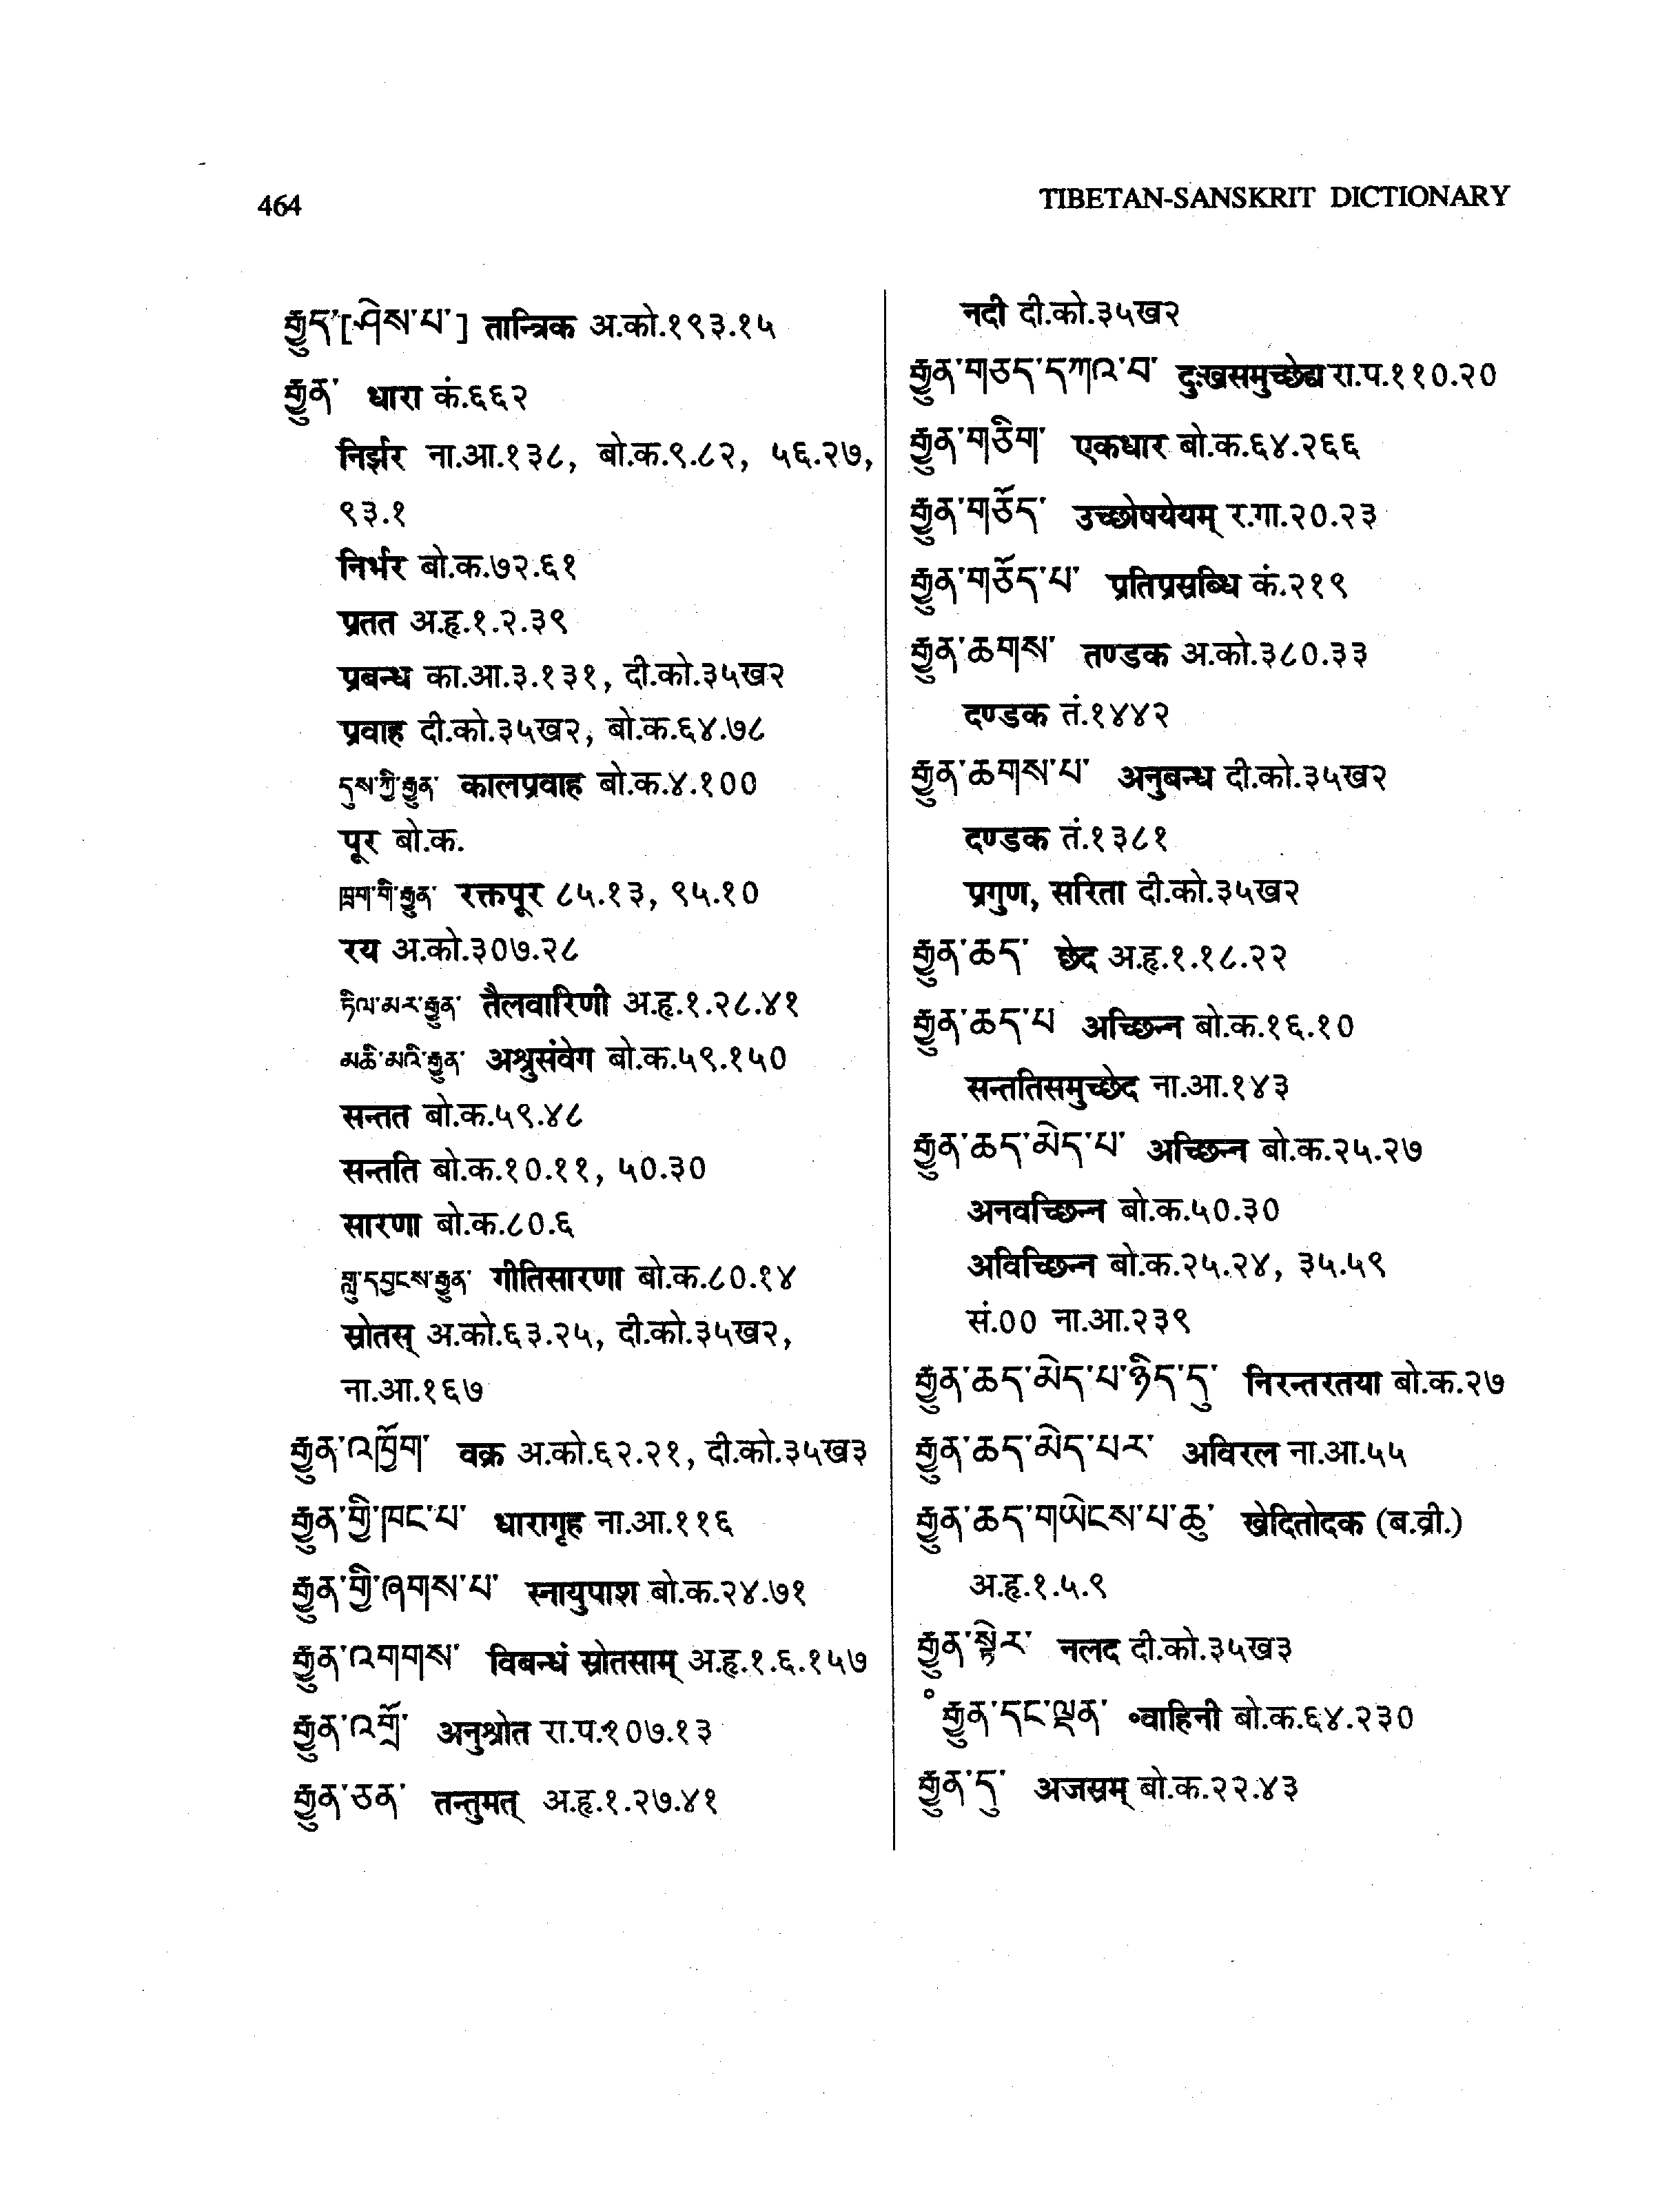 464
TIBETAN-SANSKRIT DICTIONARY
རྒྱུད་[ཤེས་པ་] तान्त्रिक अ.को.१९३.१५
རྒྱུན་ धारा कं.६६२
निर्झर ना.आ.१३८, बो.क.९.८२, ५६.२७,
९३.१
निर्भर बो.क.७२.६१
प्रतत अ.हृ.१.२.३९
प्रबन्ध का.आ.३.१३१, दी.को.३५ख२
प्रवाह दी.को.३५ख२, बो.क.६४.७८
དུས་ཀྱི་རྒྱུན་ कालप्रवाह बो.क.४.१००
पूर बो.क.
ཁྲག་གི་རྒྱུན་ रक्तपूर ८५.१३, ९५.१०
रय अ.को.३०७.२८
ཏིལ་མར་རྒྱུན་ तैलवारिणी अ.हृ.१.२८.४१
མཆི་མའི་རྒྱུན་ अश्रुसंवेग बो.क.५९.१५०
सन्तत बो.क.५९.४८
सन्तति बो.क.१०.११, ५०.३०
सारणा बो.क.८०.६
གླུ་དབྱངས་རྒྱུན་ गीतिसारणा बो.क.८०.१४
स्रोतस् अ.को.६३.२५, दी.को.३५ख२,
ना.आ.१६७
རྒྱུན་འཁྱོག་ वक्र अ.को.६२.२१, दी.को.३५ख३
རྒྱུན་གྱི་ཁང་པ་ धारागृह ना.आ.११६
རྒྱུན་གྱི་ཞགས་པ་ स्नायुपाश बो.क.२४.७१
རྒྱུན་འགགས་ विबन्धं स्रोतसाम् अ.हृ.१.६.१५७
རྒྱུན་འགྲོ་ अनुश्रोत रा.प.१०७.१३
རྒྱུན་ཅན་ तन्तुमत् अ.हृ.१.२७.४१
नदी दी.को.३५ख२
རྒྱུན་གཅད་དཀའ་བ་ दुःखसमुच्छेद्य रा.प.११०.२०
རྒྱུན་གཅིག་ एकधार बो.क.६४.२६६
རྒྱུན་གཅོད་ उच्छोषयेयम् र.गा.२०.२३
རྒྱུན་གཅོད་པ་ प्रतिप्रस्रब्धि कं.२१९
རྒྱུན་ཆགས་ तण्डक अ.को.३८०.३३
दण्डक तं.१४४२
རྒྱུན་ཆགས་པ་ अनुबन्ध दी.को.३५ख२
दण्डक तं.१३८१
प्रगुण, सरिता दी.को.३५ख२
རྒྱུན་ཆད་ छेद अ.हृ.१.१८.२२
རྒྱུན་ཆད་པ अच्छिन्न बो.क.१६.१०
सन्ततिसमुच्छेद ना.आ.१४३
རྒྱུན་ཆད་མེད་པ་ अच्छिन्न बो.क.२५.२७
अनवच्छिन्न बो.क.५०.३०
अविच्छिन्न बो.क.२५.२४, ३५.५९
सं.०० ना.आ.२३९
རྒྱུན་ཆད་མེད་པ་ཉིད་དུ་ निरन्तरतया बो.क.२७
རྒྱུན་ཆད་མེད་པར་ अविरल ना.आ.५५
རྒྱུན་ཆད་གཡེངས་པ་ཆུ་ खेदितोदक (ब.व्री.)
अ.हृ.१.५.९
རྒྱུན་སྟེར་ नलद दी.को.३५ख३
°རྒྱུན་དང་ལྡན་ ०वाहिनी बो.क.६४.२३०
རྒྱུན་དུ་ अजस्रम् बो.क.२२.४३